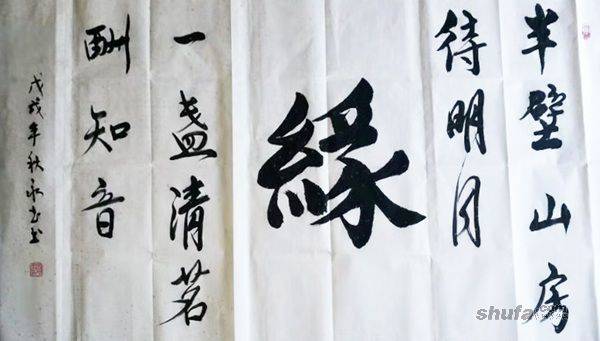 半壁山房
待明月
緣
一盏清茗
酬知音
戊戌年秋永志书
shufa